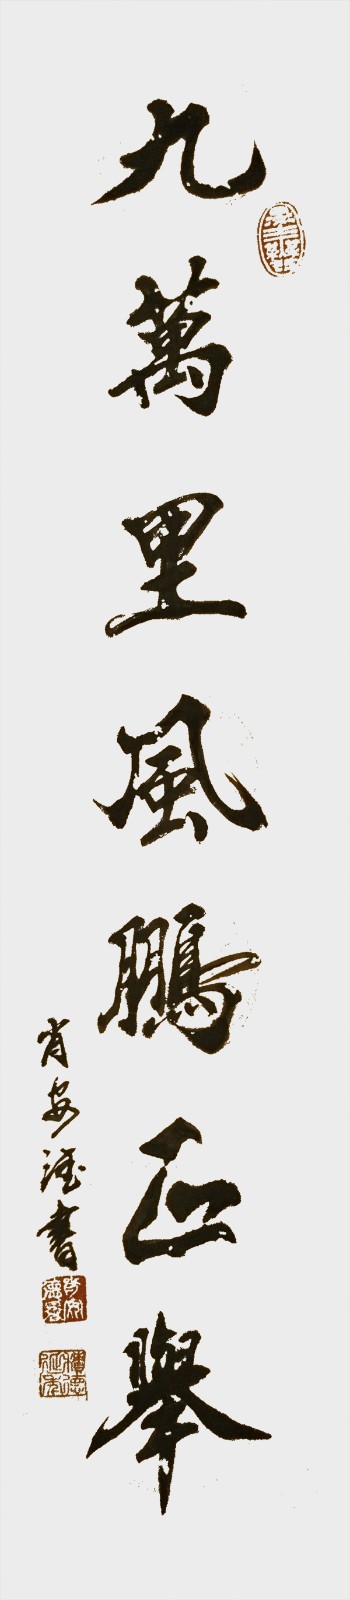 九萬里風鵬正舉
肖安
書